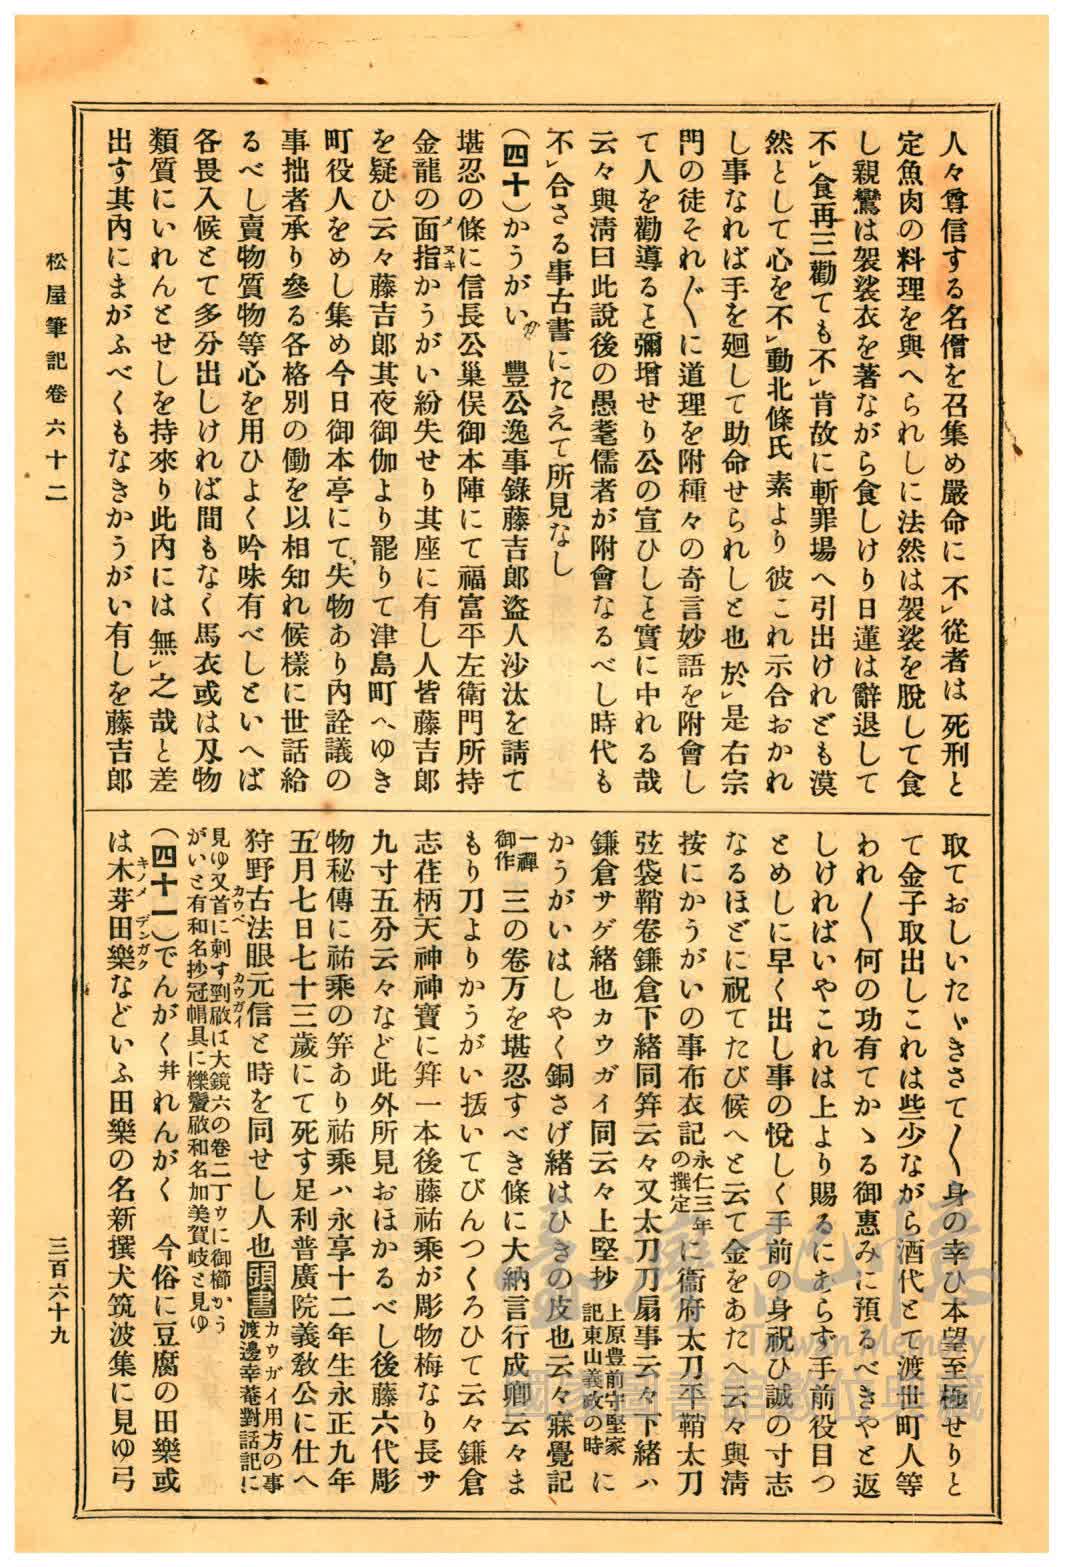 人々尊信する名僧を召集め嚴命に不㆑從者は死刑と
定魚肉の料理を與へられしに法然は袈裟を脫して食
し親鸞は袈裟衣を著ながら食しけり日蓮は辭退して
不㆑食再三勸ても不㆑肯故に斬罪場へ引出けれども漠
然として心を不㆑動北條氏素より彼これ示合おかれ
し事なれば手を廻して助命せられしと也於㆑是右宗
門の徒それ〴〵に道理を附種々の奇言妙語を附會し
て人を勸導ると彌增せり公の宣ひしと實に中れる哉
云々與淸曰此說後の愚耄儒者が附會なるべし時代も
不㆑合さる事古書にたえて所見なし
(四十)かうがい 豐公逸事錄藤吉郎盜人沙汰を請て
堪忍の條に信長公巢俣御本陣にて福富平左衛門所持
金龍の面指メヌキかうがい紛失せり其座に有し人皆藤吉郎
を疑ひ云々藤吉郎其夜御伽より罷りて津島町へゆき
町役人をめし集め今日御本亭にて失物あり內詮議の
事拙者承り參る各格別の働を以相知れ候樣に世話給
るべし賣物質物等心を用ひよく吟味有べしといへば
各畏入候とて多分出しければ間もなく馬衣或は刄物
類質にいれんとせしを持來り此內には無㆑之哉と差
出す其內にまがふべくもなきかうがい有しを藤吉郎
取ておしいたゞきさて〳〵身の幸ひ本望至極せりと
て金子取出しこれは些少ながら酒代とて渡世町人等
われ〳〵何の功有てかゝる御惠みに預るべきやと返
しければいやこれは上より賜るにあらず手前役目つ
とめしに早く出し事の悅しく手前の身祝ひ誠の寸志
なるほどに祝てたび候へと云て金をあたへ云々與淸
按にかうがいの事布衣記永仁三年の撰定に衞府太刀平鞘太刀
弦袋鞘卷鎌倉下緖同笄云々又太刀刀扇事云々下緖ハ
鎌倉サゲ緖也カウガイ同云々上堅抄上原豊前守堅家記東山義政の時に
かうがいはしやく銅さげ緖はひきの皮也云々寐覺記
一禪御作三の卷万を堪忍すべき條に大納言行成卿云々ま
もり刀よりかうがい拔いてびんつくろひて云々鎌倉
志荏柄天神神寶に笄一本後藤祐乘が彫物梅なり長サ
九寸五分云々など此外所見おほかるべし後藤六代彫
物秘傳に祐乘の笄あり祐乘ハ永享十二年生永正九年
五月七日七十三歲にて死す足利普廣院義敎公に仕へ
狩野古法眼元信と時を同せし人也頭書カウガイ用方の事渡邊幸菴對話記に
見ゆ又首カウベに刺す㔁㪉カウガイは大鏡六の卷二丁ウに御櫛かう
がいと有和名抄冠帽具に㩧鬢㪉和名加美賀岐と見ゆ
(四十一)でんがく幷れんがく 今俗に豆腐の田樂或
は木芽キノメ田樂デンガクなどいふ田樂の名新撰犬筑波集に見ゆ弓
松屋筆記卷六十二
三百六十九
臺灣記憶
Taiwan Memory
國家圖書館數位典藏